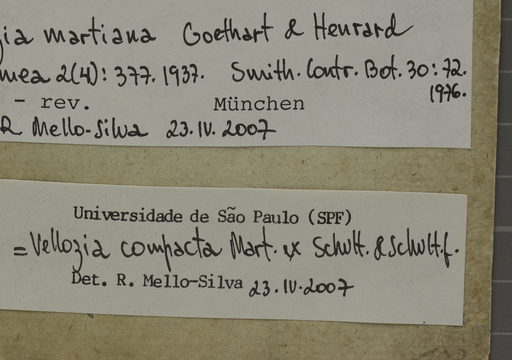 ia martiana Goethart & Henrard
mea 2(4): 377. 1937. Smith. Contr. Bot. 30: 72.
1976.
- rev. München
R Mello-Silva 23.IV.2007
Universidade de São Paulo (SPF)
= Vellozia compacta Mart. ex Schult. & Schult.f.
Det. R. Mello-Silva 23.IV.2007